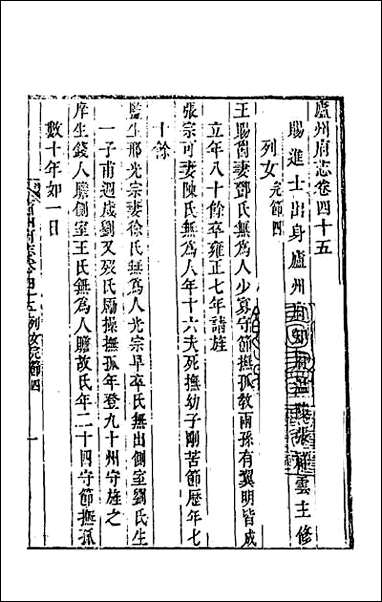 廬州府志卷四十五
賜進士出身廬州府知府 張祥雲主修
列女完節四
王賜茵妻鄧氏無為人少寡守節撫孤教兩孫有翼明皆成
立年八十餘卒雍正七年請旌
張宗可妻陳氏無為人年十六夫死撫幼子剛苦節歷年七
十餘
監生邢光宗妻徐氏無為人光宗早卒氏無出側室劉氏生
一子甫週歲劉又歿氏勵操撫孤年登九十州守旌之
庠生錢人膽側室王氏無為人膽故氏年二十四守節撫孤
數十年如一日
廬州府志 卷四十五 列女完節四 一